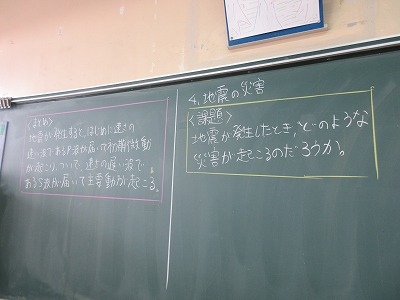 <まとめ>
地震が発生すると、はじめに速さの
速い波であるP波が届いて初期微動
が起こり、ついで、速さの遅い波で
あるS波が届いて主要動が起こる。
4、地震の災害
<課題>
地震が発生したとき、どのような
災害が起こるのだろうか。